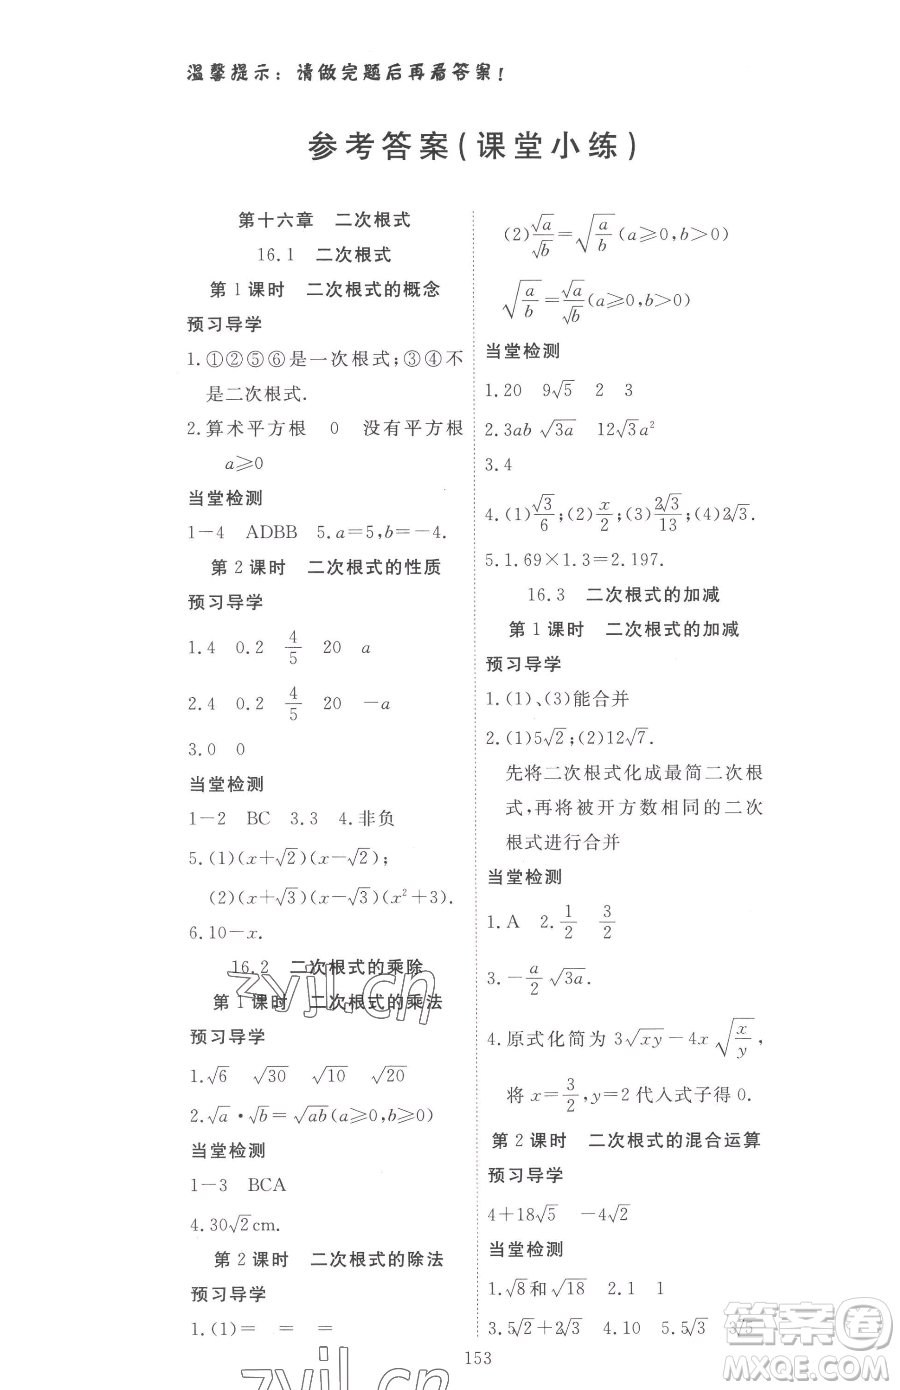 温馨提示：请做完题后再看答案！
参考答案(课堂小练)
第十六章　二次根式
16.1　二次根式
第1课时　二次根式的概念
预习导学
1.①②⑤⑥是一次根式;③④不
是二次根式.
2.算术平方根　0　没有平方根
a⩾0
当堂检测
1-4　ADBB　5.a=5,b=-4.
第2课时　二次根式的性质
预习导学
1.4　0.2　4/5　20　a
2.4　0.2　4/5　20　-a
3.0　0
当堂检测
1-2　BC　3.3　4.非负
5.(1)(x+√2)(x-√2);
(2)(x+√3)(x-√3)(x²+3).
6.10-x.
16.2　二次根式的乘除
第1课时　二次根式的乘法
预习导学
1.√6　√30　√10　√20
2.√a·√b=√ab(a⩾0,b⩾0)
当堂检测
1-3　BCA
4.30√2cm.
第2课时　二次根式的除法
预习导学
1.(1)=　=　=
(2)√a/√b=√(a/b)(a⩾0,b>0)
√(a/b)=√a/√b(a⩾0,b>0)
当堂检测
1.20　9√5　2　3
2.3ab√3a　12√3a²
3.4
4.(1)√3/6;(2)x/2;(3)2√3/13;(4)2√3.
5.1.69×1.3=2.197.
16.3　二次根式的加减
第1课时　二次根式的加减
预习导学
1.(1)、(3)能合并
2.(1)5√2;(2)12√7.
先将二次根式化成最简二次根
式,再将被开方数相同的二次
根式进行合并
当堂检测
1.A　2.1/2　3/2
3.-a/2√3a.
4.原式化简为3√xy-4x√(x/y),
将x=3/2,y=2代入式子得0.
第2课时　二次根式的混合运算
预习导学
4+18√5　-4√2
当堂检测
1.√8和√18　2.1　1
3.5√2+2√3　4.10　5.5√3　3√5
153
zyjl.cn
zyjl.cn
答案圈
MXQE.COM